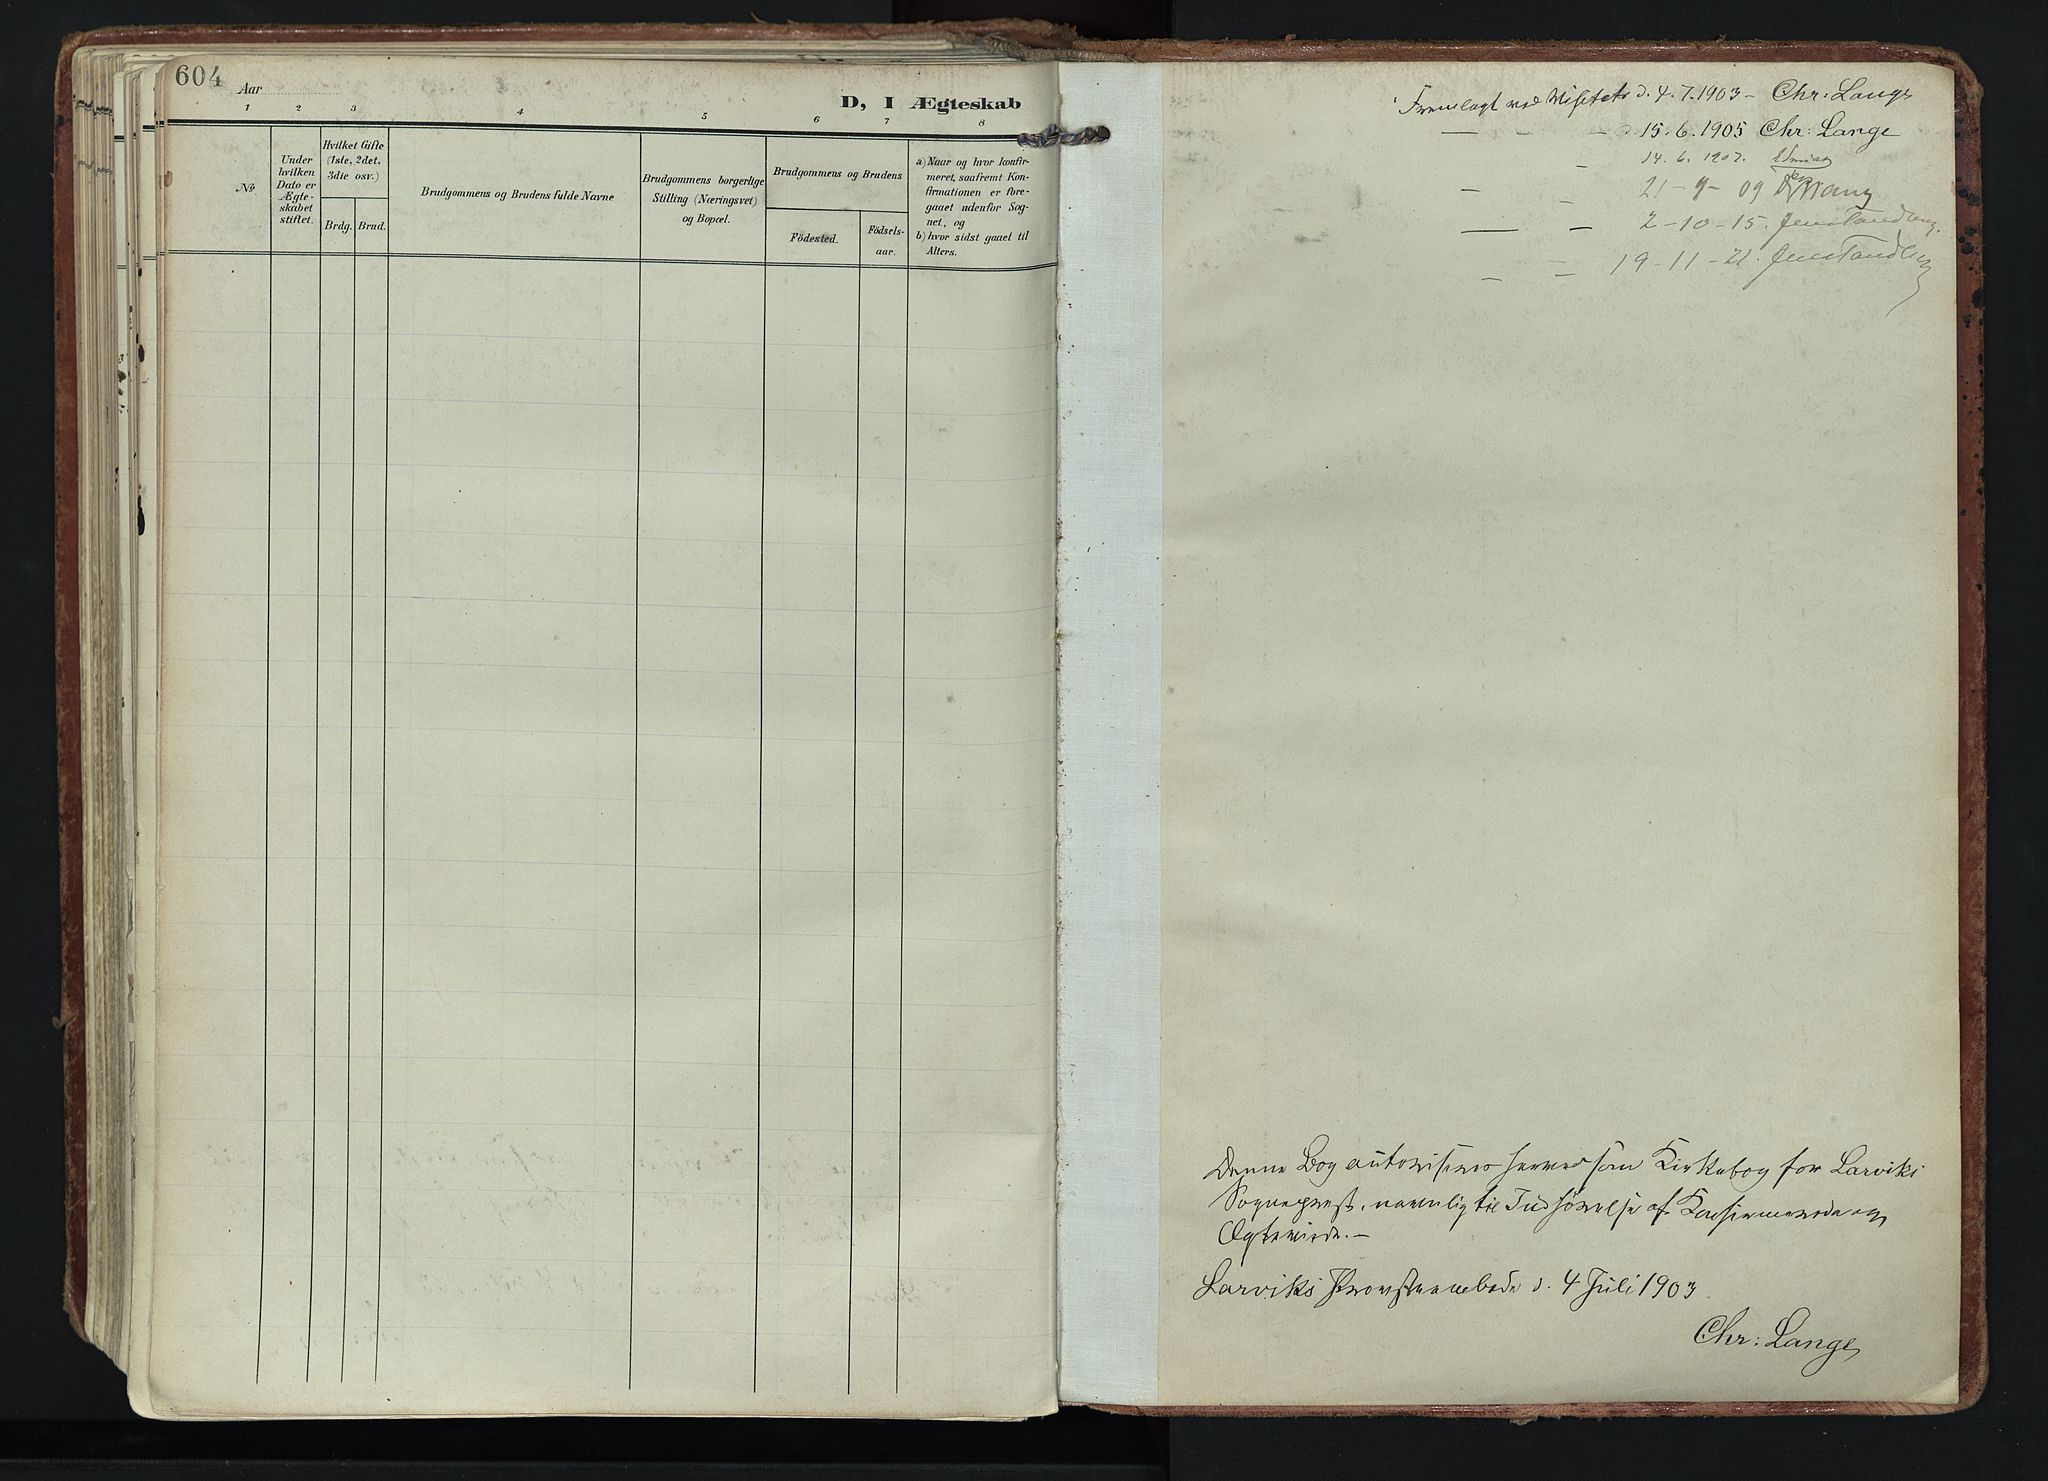 604
Aar
D, I Ægteskab
1 2 3 4 5 6 7 8
No.
Under
hvilken
Dato er
Ægte-
skabet
stiftet.
Hvilket Gifte
(1ste, 2det,
3die osv.)
Brdg. Brud.
Brudgommens og Brudens fulde Navne
Brudgommens borgerlige
Stilling (Næringsvei)
og Bopæl.
Brudgommens og Brudens
Födested.
Födsels-
aar.
a) Naar og hvor konfir-
meret, saafremt Kon-
firmationen er fore-
gaaet udenfor Sog-
net, og
b) hvor sidst gaaet til
Alters.
Fremlagt ved Visitats d. 4.7.1903 – Chr: Lange
— - - 15.6.1905 Chr: Lange
- 14.6.1907.
— - 21-9-09
— - 2-10-15. Jens Tandberg.
- - 19-11-21. Jens Tandberg
Denne Bog autoriseres herved som Kirkebog for Larviks
Sogneprest, navnlig til Indförelse af Konfirmerede og
Ægteviede. –
Larviks Provstembede d. 4 Juli 1903
Chr: Lange